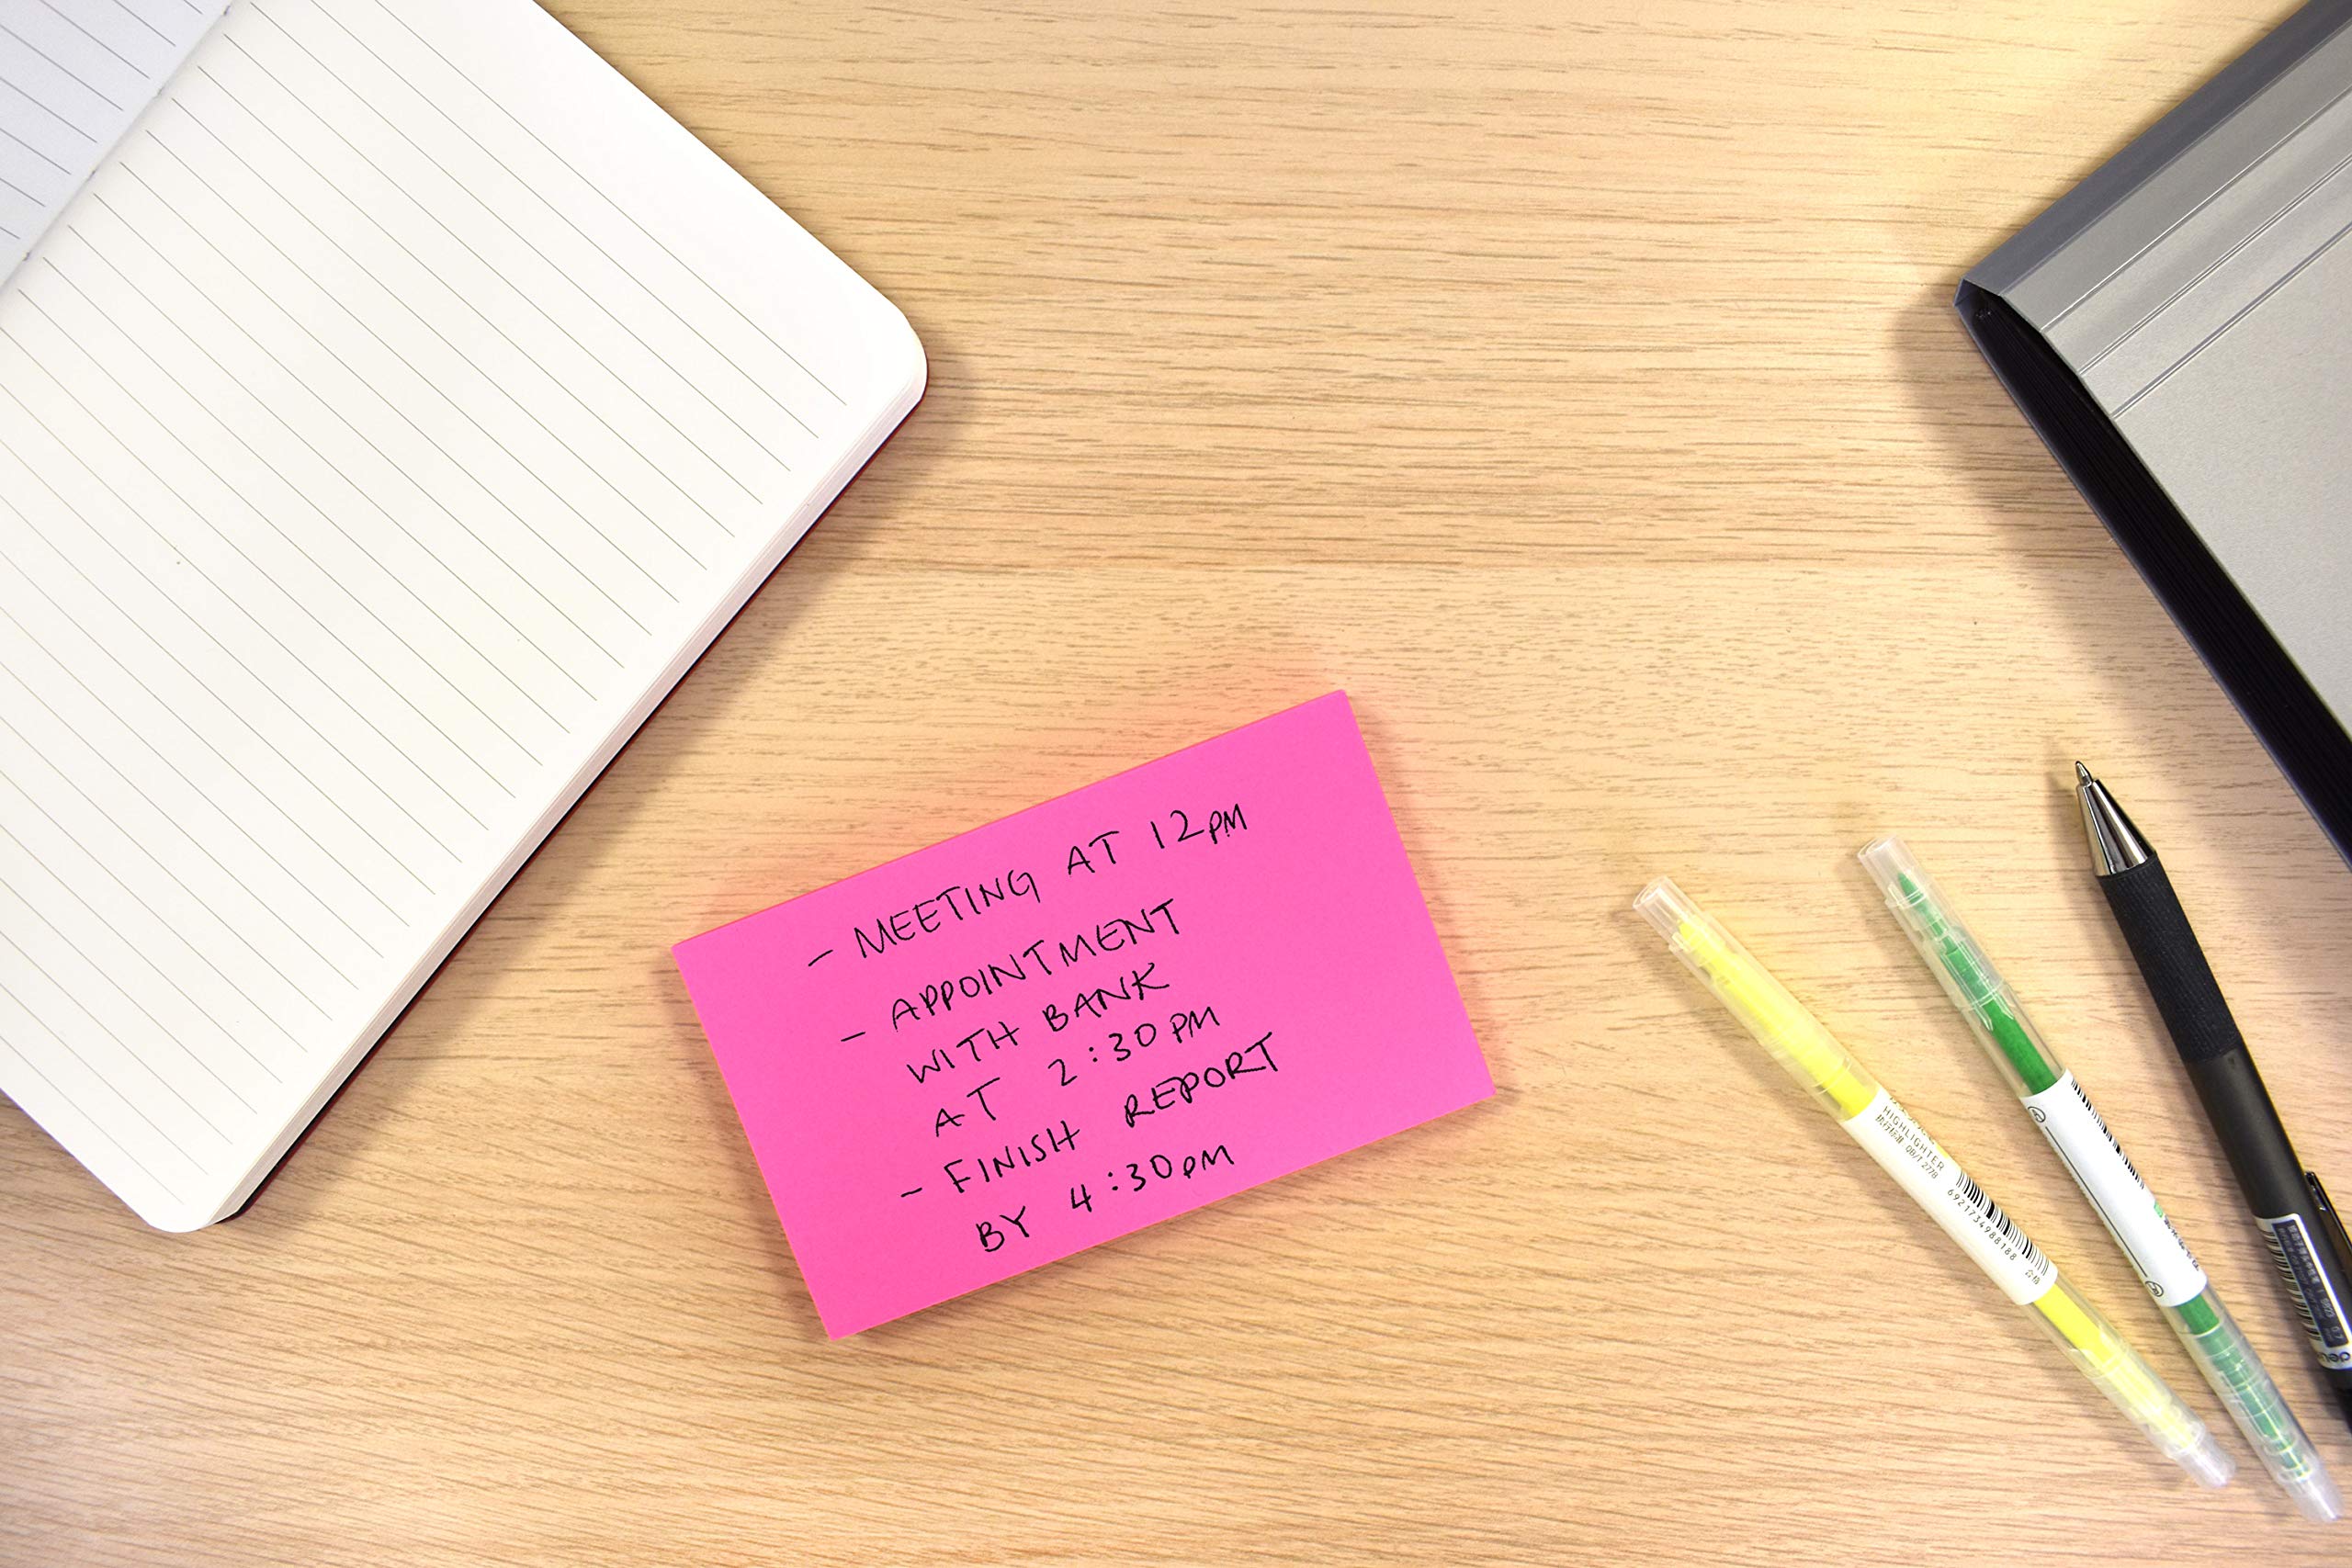 - MEETING AT 12PM
- APPOINTMENT
WITH BANK
AT 2:30 PM
- FINISH REPORT
BY 4:30PM
HIGHLIGHTER
QB/T 2778
6921734988188 合格